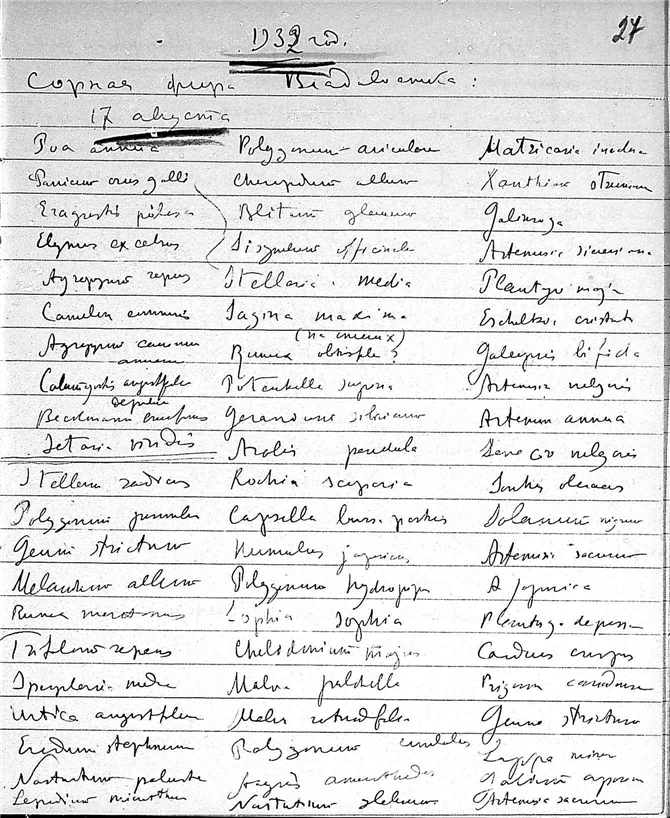 27
1932 год.
Сорная флора Владивостока:
17 августа
Poa annua Polygonum aviculare Matricaria inodora
Panicum crus galli Chenopodium album Xanthium strumarium
Eragrostis pilosa Blitum glaucum Galinsoga
Elymus excelsus Sisymbrium officinale Artemisia sieversiana
Agropyrum repens Stellaria media Plantago major
Commelina communis Sagina maxima Elscholtzia cristata
Agropyrum Rumex ? Galeopsis bifida
Calamagrostis Potentilla supina Artemisia vulgaris
Beckmannia eruciformis Geranium sibiricum Artemisia annua
Setaria viridis Arabis pendula Senecio vulgaris
Stellaria radians Kochia scoparia Sonchus oleraceus
Polygonum Capsella bursa pastoris Solanum nigrum
Geum strictum Humulus japonicus Artemisia sacrorum
Melandrium album Polygonum hydropiper A japonica
Rumex Sophia Plantago depressa
Trifolium repens Chelidonium majus Carduus crispus
Malva pulchella Erigeron canadensis
Urtica angustifolia Malva rotundifolia Geum strictum
Erodium stephanianum Polygonum Lappa minor
Nasturtium palustre
Lepidium Nasturtium Artemisia sacrorum